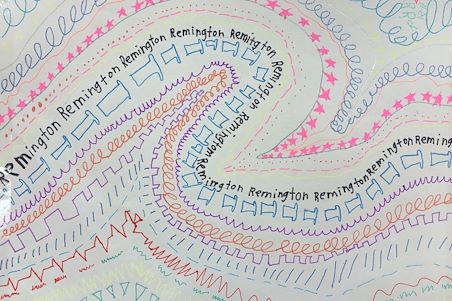 Remington Remington Remington Remington Remitgton Remington Remington Remington Remington Remington Remington Remington Reming